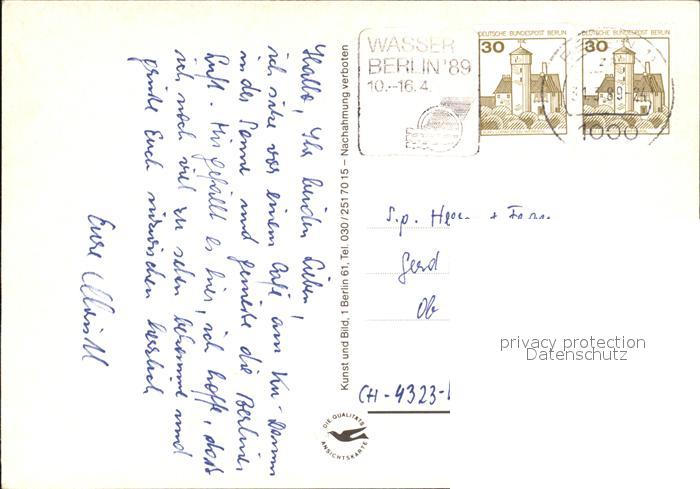 Hallo, Ihr beiden Lieben,
ich sitze vor einem Café am Ku-Damm
in der Sonne und genieße die Berliner
Luft. Mir gefällt es hier, ich hoffe, dass
ich noch viel zu sehen bekomme und
grüße Euch inzwischen herzlich
Eure
Kunst und Bild, 1 Berlin 61, Tel. 030/251 70 15 – Nachahmung verboten
WASSER
BERLIN '89
10.-16.4.
DEUTSCHE BUNDESPOST BERLIN
30
DEUTSCHE BUNDESPOST BERLIN
30
1000
S.p.
Gerd
Ob
CH-4323-
DIE QUALITÄTS
ANSICHTSKARTE
privacy protection
Datenschutz